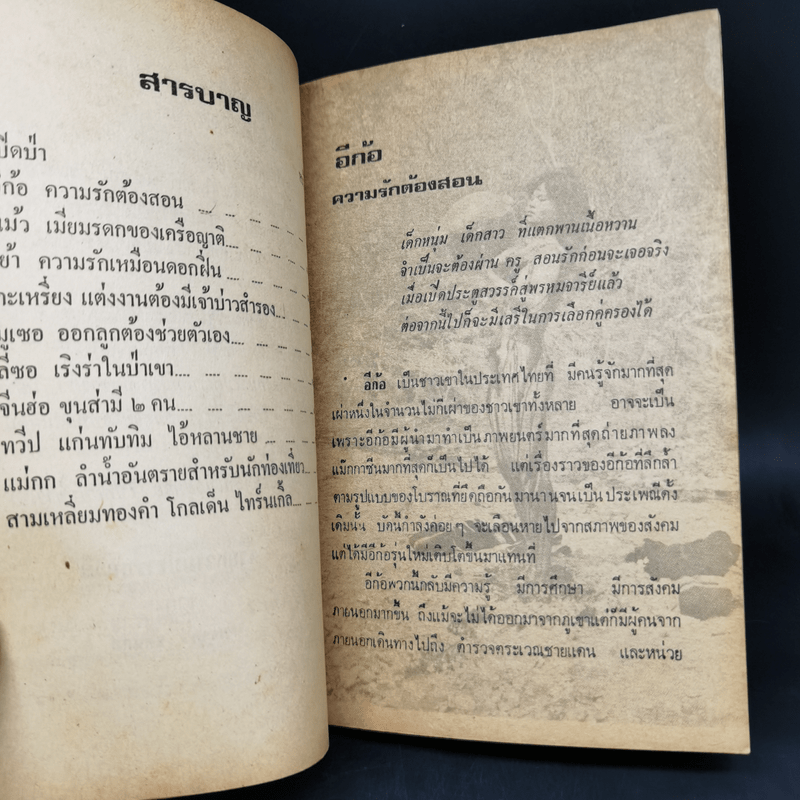 สารบาญ
เปิดป่า
อีก้อ ความรักต้องสอน
แม้ว เมียมรดกของเครือญาติ
ย้า ความรักเหมือนดอกฝิ่น
กะเหรี่ยง แต่งงานต้องมีเจ้าบ่าวสำรอง
มูเซอ ออกลูกต้องช่วยตัวเอง
ลีซอ เริงร่าในป่าเขา
จีนฮ่อ ขุนส่ามี ๒ คน
ทวีป แก่นทับทิม ไอ้หลานชาย
แม่กก ลำน้ำอันตรายสำหรับนักท่องเที่ยว
สามเหลี่ยมทองคำ โกลเด็น ไทร์นเกิ้ล
อีก้อ
ความรักต้องสอน
เด็กหนุ่ม เด็กสาว ที่แตกพานเนื้อหวาน
จำเป็นจะต้องผ่าน ครู สอนรักก่อนจะเจอจริง
เมื่อเปิดประตูสวรรค์สู่พรหมจารีย์แล้ว
ต่อจากนี้ไปก็จะมีเสรีในการเลือกคู่ครองได้
อีก้อ เป็นชาวเขาในประเทศไทยที่ มีคนรู้จักมากที่สุด
เผ่าหนึ่งในจำนวนไม่กี่เผ่าของชาวเขาทั้งหลาย อาจจะเป็น
เพราะอีก้อมีผู้นำมาทำเป็นภาพยนตร์มากที่สุดถ่ายภาพลง
แม๊กกาซีนมากที่สุดก็เป็นไปได้ แต่เรื่องราวของอีก้อที่ลึกล้ำ
ตามรูปแบบของโบราณที่ยึดถือกันมานานจนเป็นประเพณีดั้ง
เดิมนั้น บัดนี้กำลังค่อยๆ จะเลือนหายไปจากสภาพของสังคม
แต่ได้มีอีก้อรุ่นใหม่เติบโตขึ้นมาแทนที่
อีก้อพวกนี้กลับมีความรู้ มีการศึกษา มีการสังคม
ภายนอกมากขึ้น ถึงแม้จะไม่ได้ออกมาจากภูเขาแต่ก็มีผู้คนจาก
ภายนอกเดินทางไปถึง ตำรวจตระเวณชายแดน และหน่วย